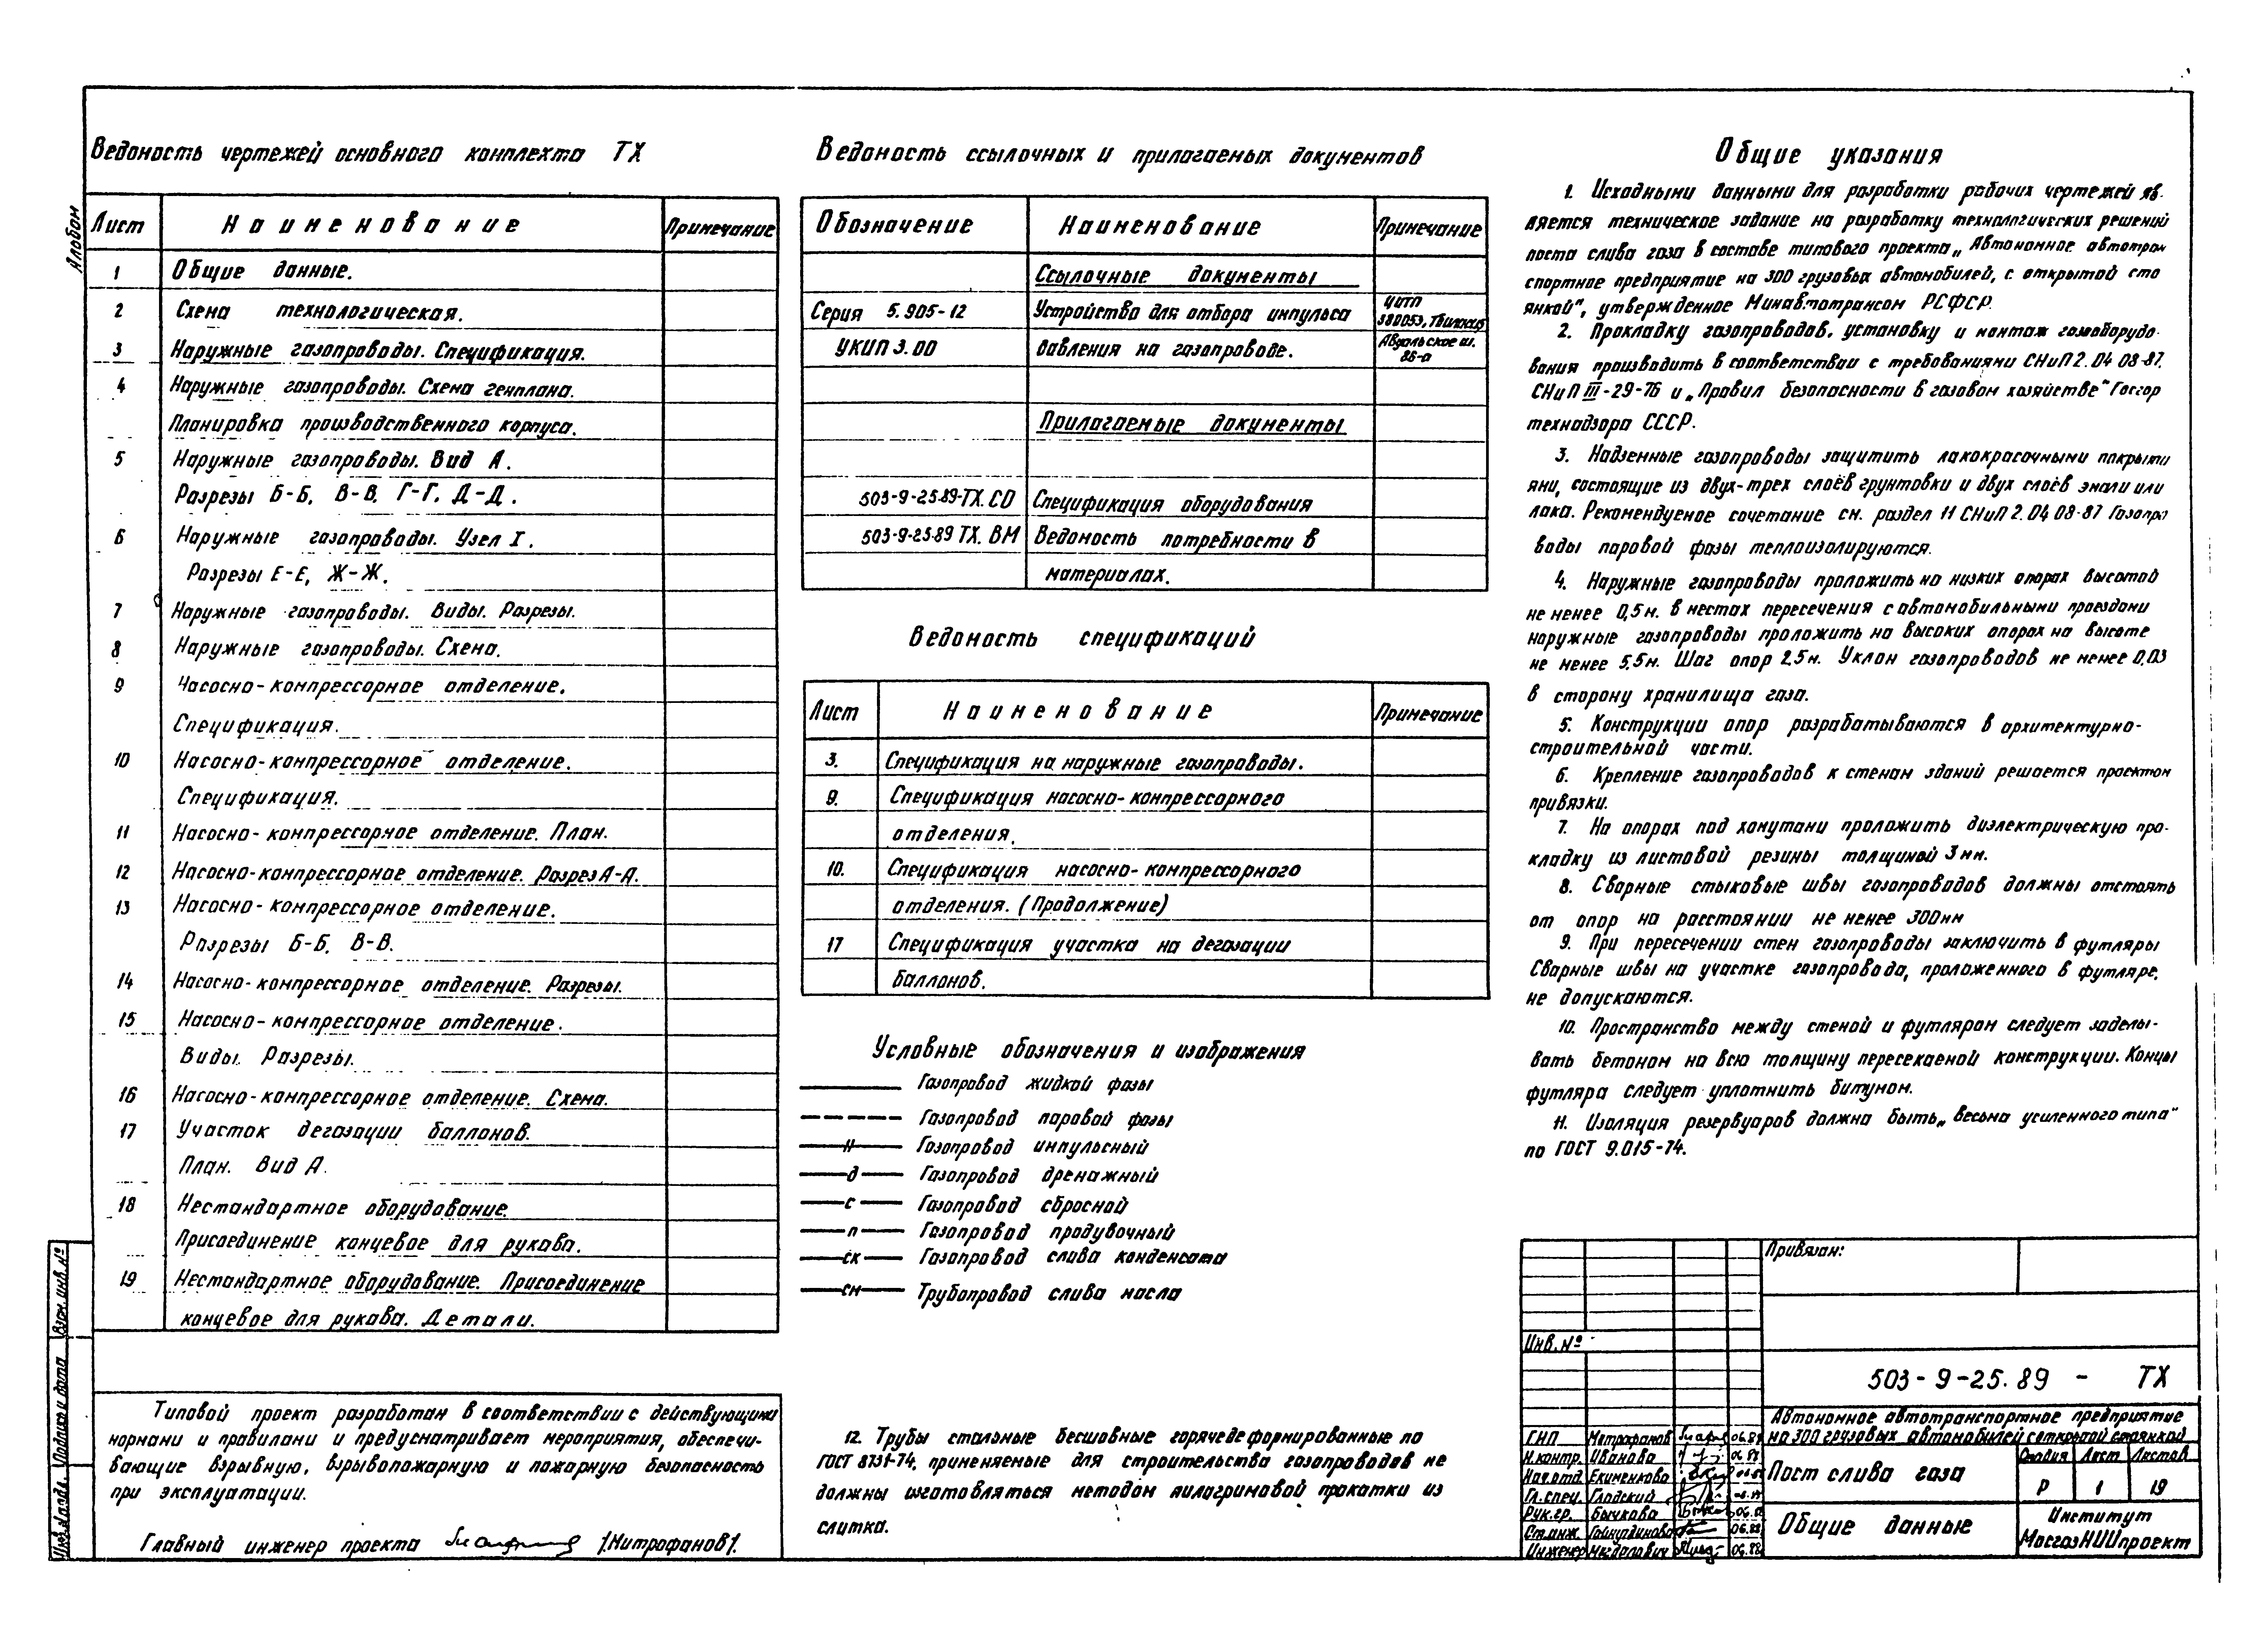 Альбом
Ведомость чертежей основного комплекта ТХ
Лист Наименование Примечание
1 Общие данные.
2 Схема технологическая.
3 Наружные газопроводы. Спецификация.
4 Наружные газопроводы. Схема генплана.
Планировка производственного корпуса.
5 Наружные газопроводы. Вид А.
Разрезы Б-Б, В-В, Г-Г, Д-Д.
6 Наружные газопроводы. Узел I.
Разрезы Е-Е, Ж-Ж.
7 Наружные газопроводы. Виды. Разрезы.
8 Наружные газопроводы. Схема.
9 Насосно-компрессорное отделение.
Спецификация.
10 Насосно-компрессорное отделение.
Спецификация.
11 Насосно-компрессорное отделение. План.
12 Насосно-компрессорное отделение. Разрез А-А.
13 Насосно-компрессорное отделение.
Разрезы Б-Б, В-В.
14 Насосно-компрессорное отделение. Разрезы.
15 Насосно-компрессорное отделение.
Виды. Разрезы.
16 Насосно-компрессорное отделение. Схема.
17 Участок дегазации баллонов.
План. Вид А.
18 Нестандартное оборудование.
Присоединение концевое для рукава.
19 Нестандартное оборудование. Присоединение
концевое для рукава. Детали.
Типовой проект разработан в соответствии с действующими
нормами и правилами и предусматривает мероприятия, обеспечи-
вающие взрывную, взрывопожарную и пожарную безопасность
при эксплуатации.
Главный инженер проекта /Митрофанов/.
Ведомость ссылочных и прилагаемых документов
Обозначение Наименование Примечание
Ссылочные документы
Серия 5.905-12 Устройство для отбора импульса ЦИТП
380053, Тбилиси
УКИП 3.00 давления на газопроводе. Авчальское ш.
86-а
Прилагаемые документы
503-9-25.89-ТХ.СО Спецификация оборудования
503-9-25.89 ТХ. ВМ Ведомость потребности в
материалах.
Ведомость спецификаций
Лист Наименование Примечание
3. Спецификация на наружные газопроводы.
9. Спецификация насосно-компрессорного
отделения.
10. Спецификация насосно-компрессорного
отделения. (Продолжение)
17 Спецификация участка на дегазации
баллонов.
Условные обозначения и изображения
Газопровод жидкой фазы
Газопровод паровой фазы
и Газопровод импульсный
д Газопровод дренажный
с Газопровод сбросной
п Газопровод продувочный
ск Газопровод слива конденсата
см Трубопровод слива масла
12. Трубы стальные бесшовные горячедеформированные по
ГОСТ 8731-74, применяемые для строительства газопроводов не
должны изготовляться методом пилагримовой прокатки из
слитка.
Общие указания
1. Исходными данными для разработки рабочих чертежей яв-
ляется техническое задание на разработку технологических решений
поста слива газа в составе типового проекта „Автономное автотран
спортное предприятие на 300 грузовых автомобилей, с открытой сто
янкой", утвержденное Минавтотрансом РСФСР.
2. Прокладку газопроводов, установку и монтаж газооборудо-
вания производить в соответствии с требованиями СНиП 2.04 08-87,
СНиП III-29-76 и „Правил безопасности в газовом хозяйстве" Госгор
технадзора СССР.
3. Надземные газопроводы защитить лакокрасочными покрыти
ями, состоящие из двух-трех слоёв грунтовки и двух слоёв эмали или
лака. Рекомендуемое сочетание см. раздел 11 СНиП 2.04 08-87 Газопро
воды паровой фазы теплоизолируются.
4. Наружные газопроводы проложить на низких опорах высотой
не менее 0,5м. в местах пересечения с автомобильными проездами
наружные газопроводы проложить на высоких опорах на высоте
не менее 5,5м. Шаг опор 2,5м. Уклон газопроводов не менее 0,03
в сторону хранилища газа.
5. Конструкции опор разрабатываются в архитектурно-
строительной части.
6. Крепление газопроводов к стенам зданий решается проектом
привязки.
7. На опорах под хомутами проложить диэлектрическую про-
кладку из листовой резины толщиной 3мм.
8. Сварные стыковые швы газопроводов должны отстоять
от опор на расстоянии не менее 300мм
9. При пересечении стен газопроводы заключить в футляры
Сварные швы на участке газопровода, проложенного в футляре,
не допускаются.
10. Пространство между стеной и футляром следует заделы-
вать бетоном на всю толщину пересекаемой конструкции. Концы
футляра следует уплотнить битумом.
11. Изоляция резервуаров должна быть „весьма усиленного типа"
по ГОСТ 9.015-74.
Привязан:
Инв. №
503-9-25.89 - ТХ
Автономное автотранспортное предприятие
на 300 грузовых автомобилей с открытой стоянкой
ГИП Митрофанов 06.89
Н.контр. Иванова 06.89
Нач.отд. Екименкова
Гл.спец. Гладский
Рук.гр. Бычкова 06.88
Ст.инж. 06.88
Инженер 06.88
Пост слива газа
Стадия Лист Листов
Р 1 19
Общие данные
Институт
МосгазНИИпроект
Взам. инв. №
Подпись и дата
Инв. № подл.